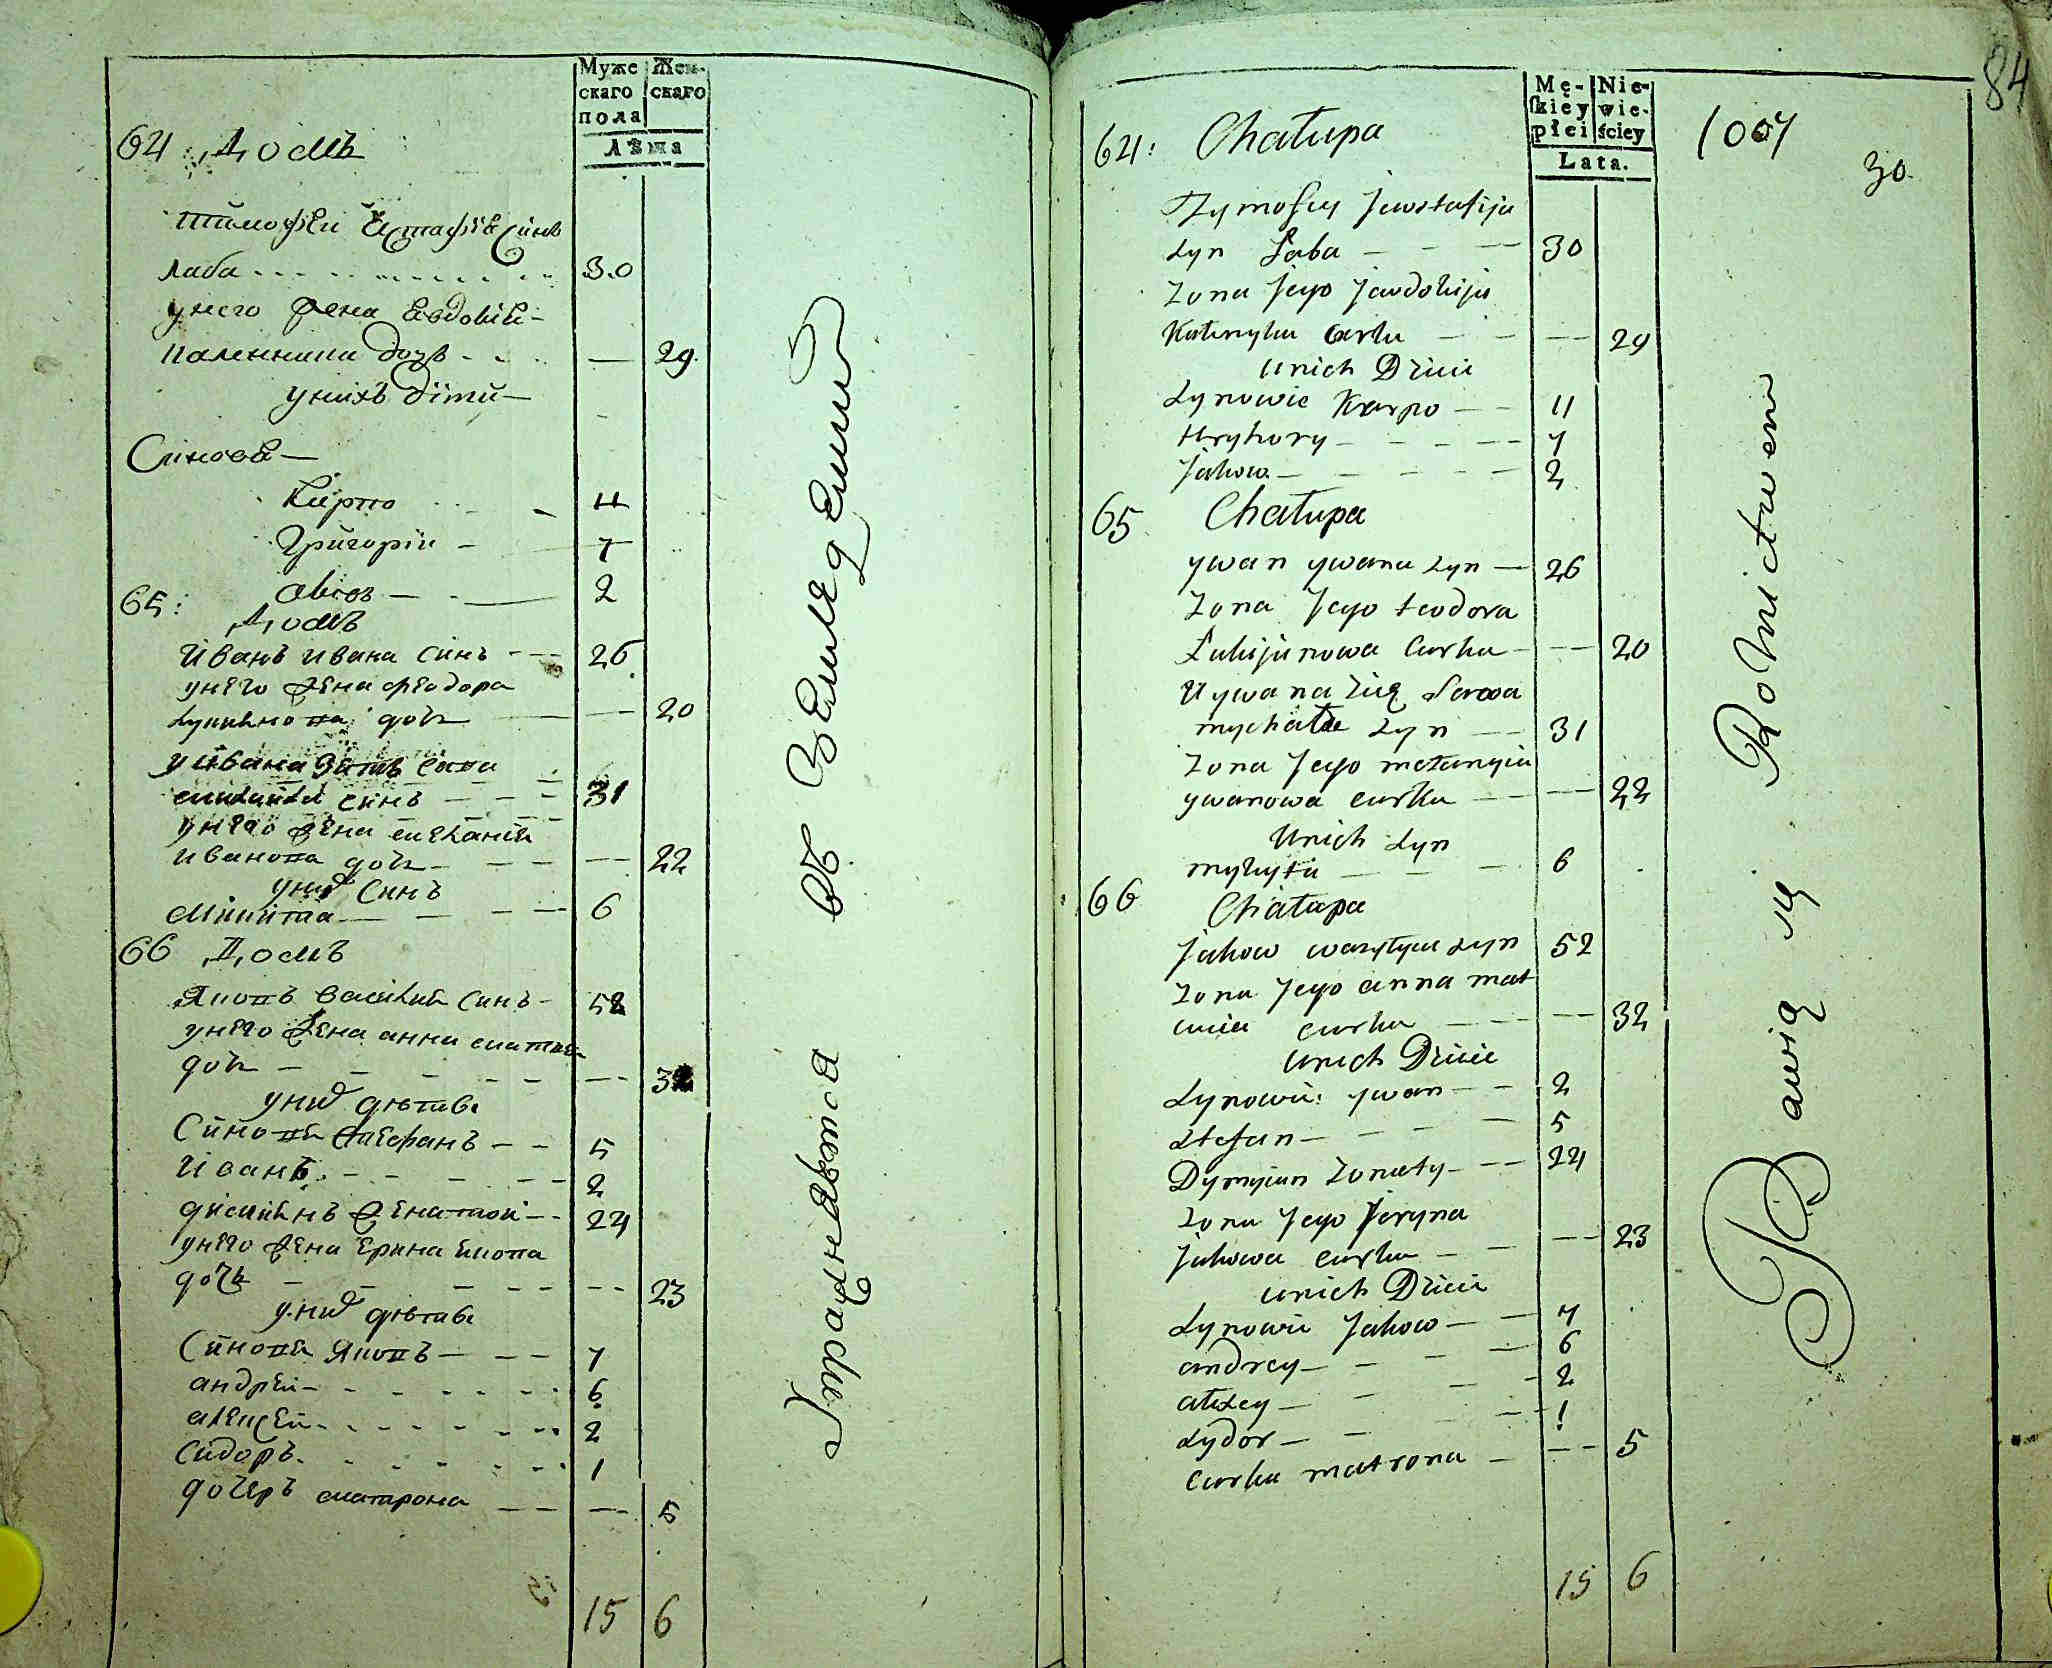 Муже
скаго
пола
Жен-
скаго
Лѣта
64 Домъ
Тимофей Естафія Синъ
Лаба 30
унего жена Евдокія
Калинника дочь — 29
унихъ діти
Синовѣ
Карпо 11
Григорій 7
Яковъ 2
65: Домъ
Иванъ Ивана синъ 26
унего жена Феодора
Лукиянова дочь — 20
у Ивана зять Сава
Михайла синъ 31
унего жена Меланія
Иванова дочь — 22
униx Синъ
Микита 6
66 Домъ
Яковъ Василія синъ 52
унего жена Анна Матвея
дочь — 32
уних дѣтей
Синовя Стефанъ 5
Иванъ 2
Димиянъ женатой 24
унего жена Ерина Якова
дочь — 23
уних дѣтей
Синовя Яковъ 7
андрей 6
алексей 2
Сидоръ 1
дочеръ матрона — 5
15 6
Упражняется въ Земледелии
84
Mę-
skiey
płci
Nie-
wie-
ściey
Lata.
1007
30.
64: Chałupa
Tymofiey Jewstafija
Syn Łaba 30
Zona Jego Jewdokija
Kalinyka Curka — 29
unich Dzieci
Synowie Karpo 11
Hryhory 7
Jakow 2
65 Chałupa
ywan ywana Syn 26
Zona Jego teodora
Łukijanowa Curka — 20
U ywana Zięć Sawa
mychała Syn 31
Zona Jego mełanyia
ywanowa curka — 22
Unich Syn
mykyta 6
66 Chałupa
Jakow wasylyia Syn 52
Zona Jego anna mat
wieia curka — 32
unich Dzieci
Synowie ywan 2
Stefan 5
Dymijan Zonaty 24
Zona Jego Jeryna
Jakowa curka — 23
unich Dzieci
Synowie Jakow 7
andrey 6
ałexey 2
Sydor 1
Curka matrona — 5
15 6
Bawią się Rolnictwem